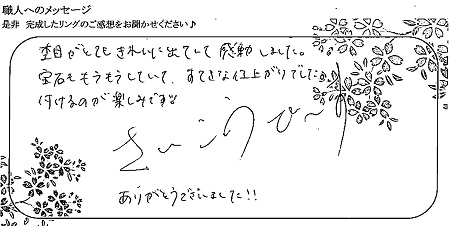 職人へのメッセージ
是非 完成したリングのご感想をお聞かせください♪
杢目がとてもきれいに出ていて感動しました。
宝石もキラキラしていて、すてきな仕上がりでした
付けるのが楽しみです!!
さいこうびー
ありがとうございました!!